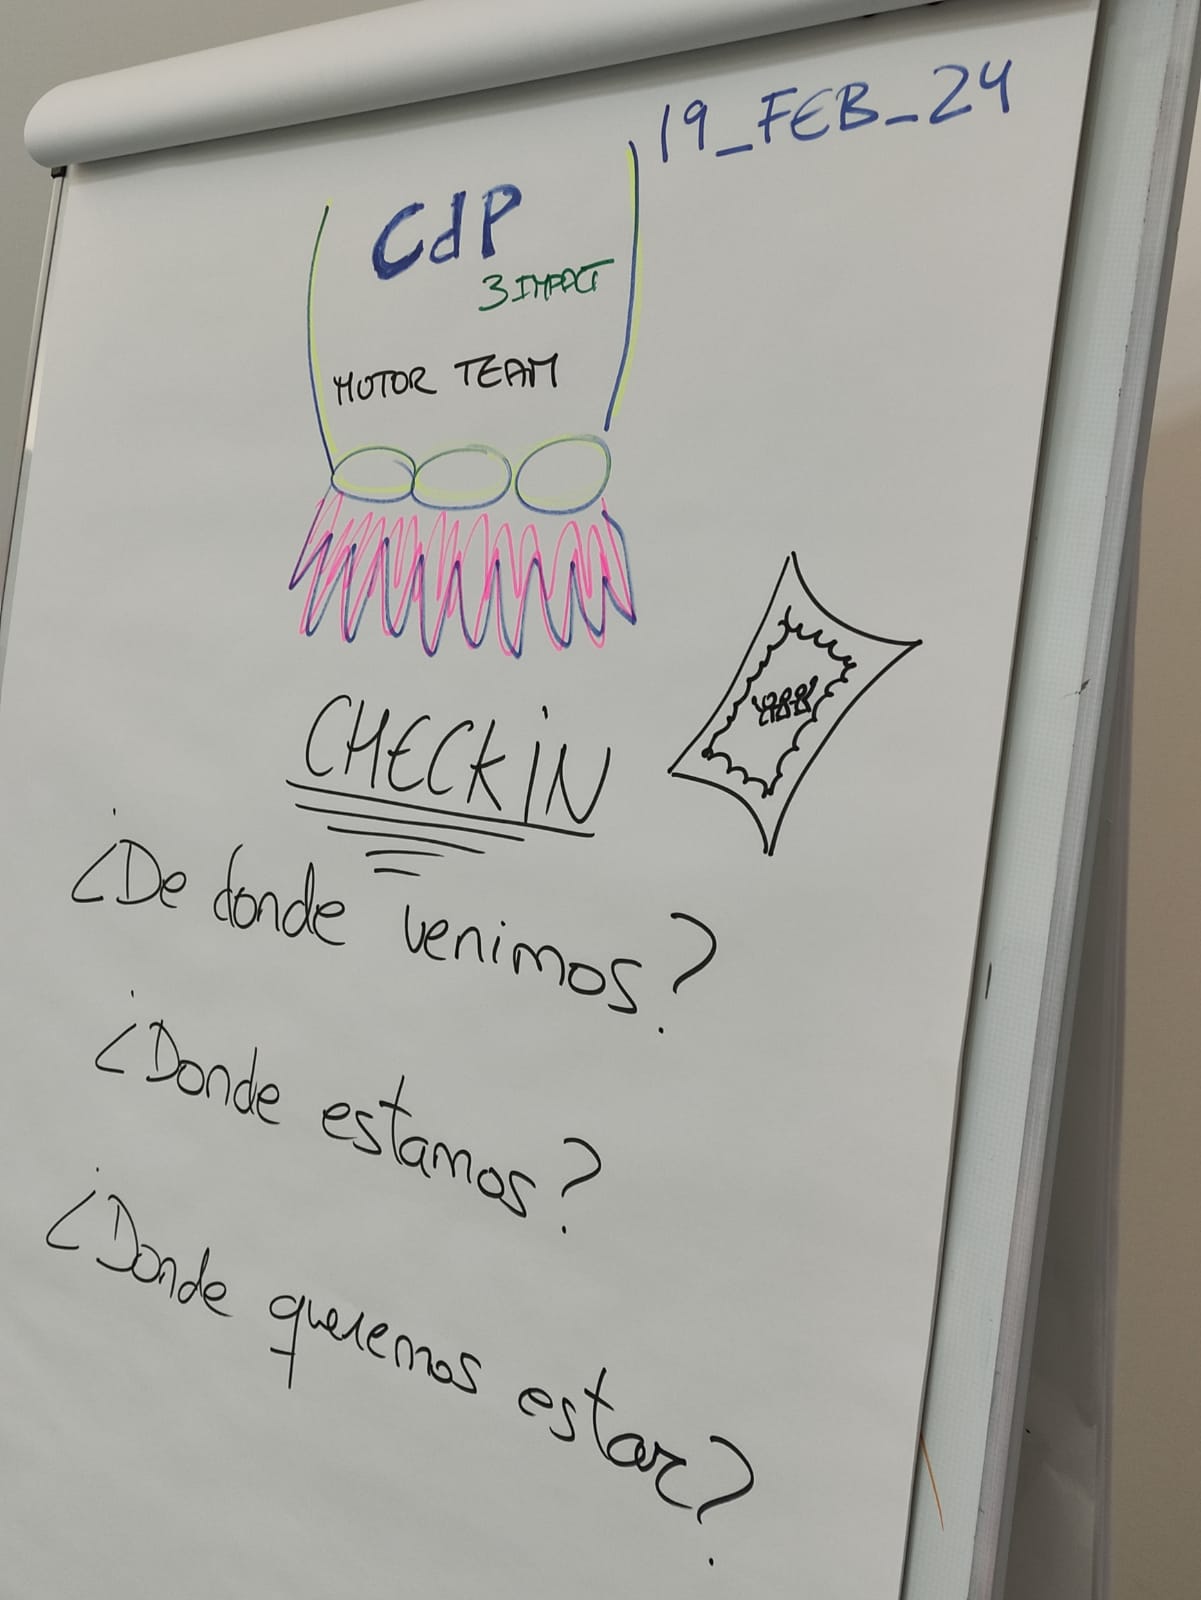 19_FEB_24
CdP
3 IMPACT
MOTOR TEAM
CHECK IN
¿De donde venimos?
¿Donde estamos?
¿Donde queremos estar?